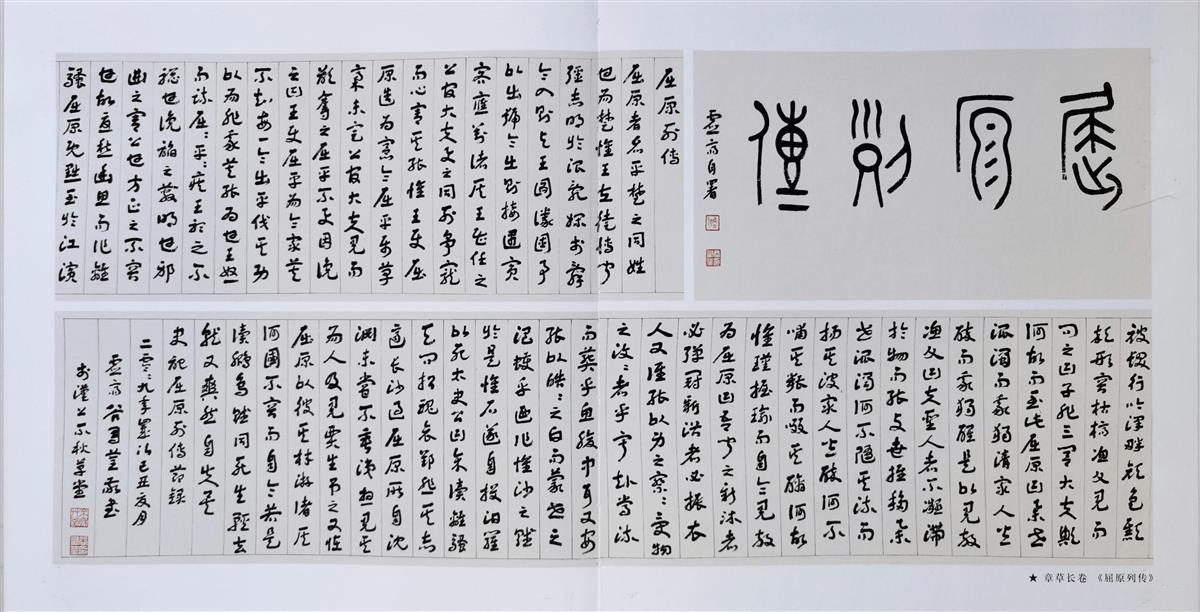 屈原列傳
虛齋自署
屈原列傳
屈原者名平楚之同姓
也為楚懷王左徒博聞
彊志明於治亂嫻於辭
令入則與王圖議國事
以出號令出則接遇賓
客應對諸侯王甚任之
上官大夫與之同列爭寵
而心害其能懷王使屈
原造為憲令屈平屬草
稾未定上官大夫見而
欲奪之屈平不與因讒
之曰王使屈平為令眾莫
不知每一令出平伐其功
以為非我莫能為也王怒
而疏屈:平:疾王聽之不
聰也讒諂之蔽明也邪
曲之害公也方正之不容
也故憂愁幽思而作離
騷屈原既黜至於江濱
被髮行吟澤畔顏色憔
悴形容枯槁漁父見而
問之曰子非三閭大夫歟
何故而至此屈原曰舉世
混濁而我獨清眾人皆
醉而我獨醒是以見放
漁父曰夫聖人者不凝滯
於物而能與世推移舉
世混濁何不隨其流而
揚其波眾人皆醉何不
餔其糟而啜其醨何故
懷瑾握瑜而自令見放
為屈原曰吾聞之新沐者
必彈冠新浴者必振衣
人又誰能以身之察:受物
之汶:者乎寧赴常流
而葬乎魚腹中耳又安
能以皓:之白而蒙世之
溫蠖乎乃作懷沙之賦
於是懷石遂自投汨羅
以死太史公曰余讀離騷
天問招魂哀郢悲其志
適長沙過屈原所自沈
淵未嘗不垂涕想見其
為人及見賈生弔之又怪
屈原以彼其材游諸侯
何國不容而自令若是
讀鵩鳥賦同死生輕去
就又爽然自失矣
史記屈原列傳節錄
二零:九年歲次己丑夏月
虛齋
不秋草堂
★ 章草长卷 《屈原列传》